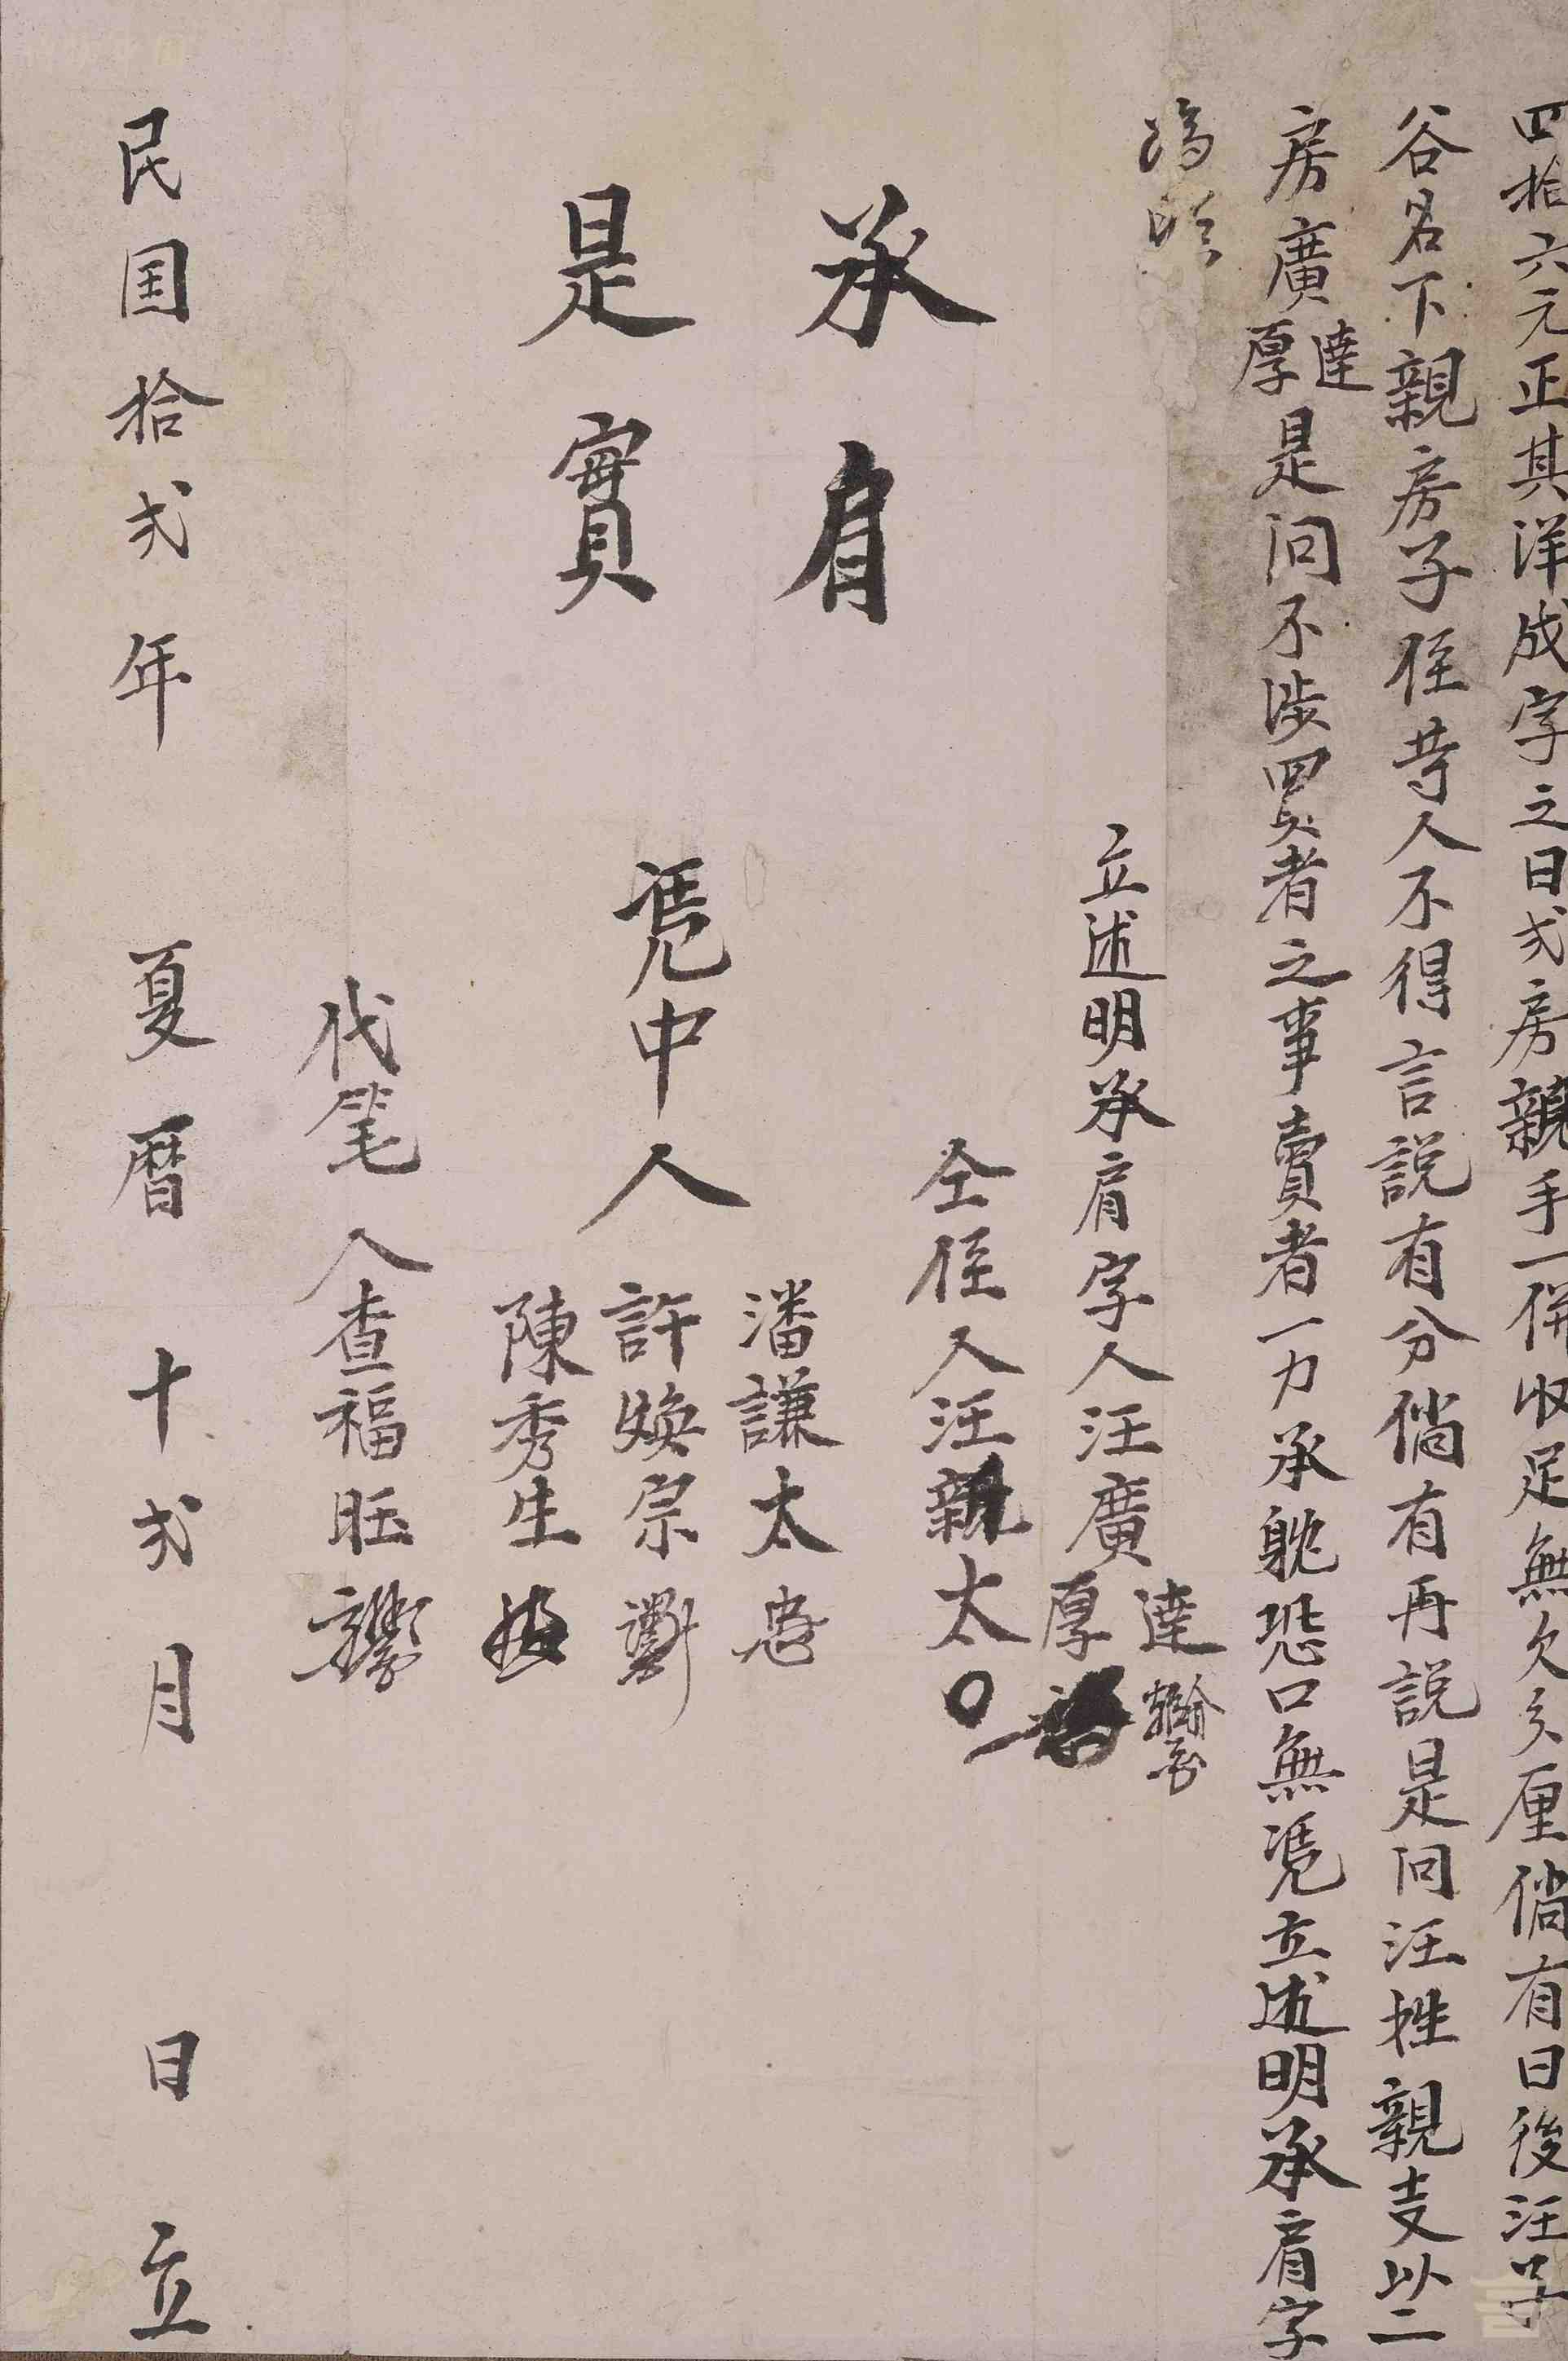 四拾六元正其洋成字之日弍房親手一併收足無欠分厘倘有日後汪子
谷名下親房子侄等人不得言説有分倘有再説是问汪姓親支以二
房廣達厚是问不涉買者之事賣者一力承躭恐口無凴立述明承肩字
為照
立述明承肩字人汪廣達厚
仝侄人汪親太
承肩
是實
凴中人
潘謙太
許煥宗
陳秀生
代笔人查福旺
民国拾弍年 夏曆 十弍月 日 立